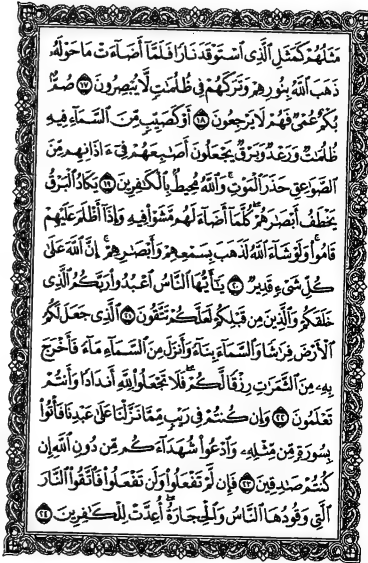 مَثَلُهُمْ كَمَثَلِ ٱلَّذِى ٱسْتَوْقَدَ نَارًا فَلَمَّآ أَضَآءَتْ مَا حَوْلَهُۥ
ذَهَبَ ٱللَّهُ بِنُورِهِمْ وَتَرَكَهُمْ فِى ظُلُمَٰتٍ لَّا يُبْصِرُونَ ۝١٧ صُمٌّۢ
بُكْمٌ عُمْىٌ فَهُمْ لَا يَرْجِعُونَ ۝١٨ أَوْ كَصَيِّبٍ مِّنَ ٱلسَّمَآءِ فِيهِ
ظُلُمَٰتٌ وَرَعْدٌ وَبَرْقٌ يَجْعَلُونَ أَصَٰبِعَهُمْ فِىٓ ءَاذَانِهِم مِّنَ
ٱلصَّوَٰعِقِ حَذَرَ ٱلْمَوْتِ ۚ وَٱللَّهُ مُحِيطٌۢ بِٱلْكَٰفِرِينَ ۝١٩ يَكَادُ ٱلْبَرْقُ
يَخْطَفُ أَبْصَٰرَهُمْ ۖ كُلَّمَآ أَضَآءَ لَهُم مَّشَوْا۟ فِيهِ وَإِذَآ أَظْلَمَ عَلَيْهِمْ
قَامُوا۟ ۚ وَلَوْ شَآءَ ٱللَّهُ لَذَهَبَ بِسَمْعِهِمْ وَأَبْصَٰرِهِمْ ۚ إِنَّ ٱللَّهَ عَلَىٰ
كُلِّ شَىْءٍ قَدِيرٌ ۝٢٠ يَٰٓأَيُّهَا ٱلنَّاسُ ٱعْبُدُوا۟ رَبَّكُمُ ٱلَّذِى
خَلَقَكُمْ وَٱلَّذِينَ مِن قَبْلِكُمْ لَعَلَّكُمْ تَتَّقُونَ ۝٢١ ٱلَّذِى جَعَلَ لَكُمُ
ٱلْأَرْضَ فِرَٰشًا وَٱلسَّمَآءَ بِنَآءً وَأَنزَلَ مِنَ ٱلسَّمَآءِ مَآءً فَأَخْرَجَ
بِهِۦ مِنَ ٱلثَّمَرَٰتِ رِزْقًا لَّكُمْ ۖ فَلَا تَجْعَلُوا۟ لِلَّهِ أَندَادًا وَأَنتُمْ
تَعْلَمُونَ ۝٢٢ وَإِن كُنتُمْ فِى رَيْبٍ مِّمَّا نَزَّلْنَا عَلَىٰ عَبْدِنَا فَأْتُوا۟
بِسُورَةٍ مِّن مِّثْلِهِۦ وَٱدْعُوا۟ شُهَدَآءَكُم مِّن دُونِ ٱللَّهِ إِن
كُنتُمْ صَٰدِقِينَ ۝٢٣ فَإِن لَّمْ تَفْعَلُوا۟ وَلَن تَفْعَلُوا۟ فَٱتَّقُوا۟ ٱلنَّارَ
ٱلَّتِى وَقُودُهَا ٱلنَّاسُ وَٱلْحِجَارَةُ ۖ أُعِدَّتْ لِلْكَٰفِرِينَ ۝٢٤